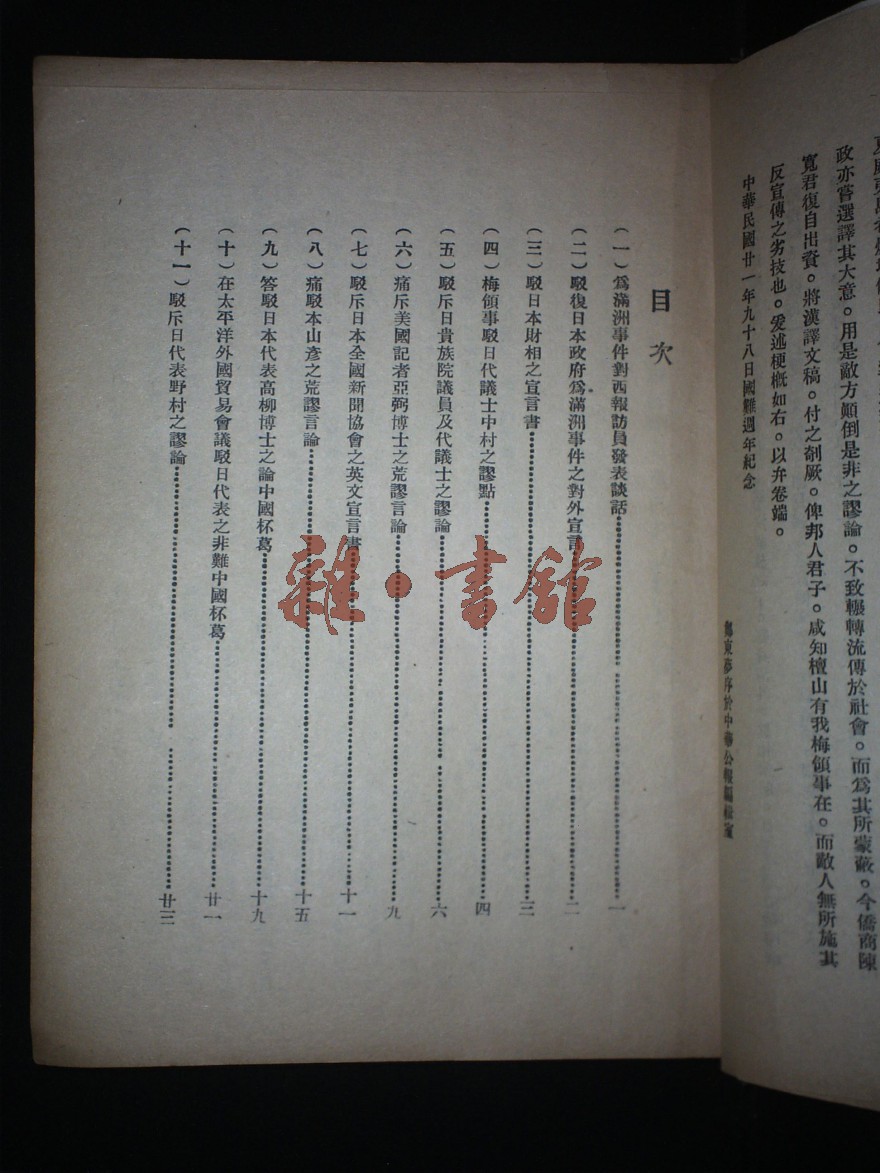 政亦嘗選譯其大意。用是敵方顚倒是非之謬論。不致輾轉流傳於社會。而爲其所蒙蔽。今僑商陳
寬君復自出資。將漢譯文稿。付之剞厥。俾邦人君子。咸知檀山有我梅領事在。而敵人無所施其
反宣傳之劣技也。爰述梗概如右。以弁卷端。
中華民國廿一年九十八日國難週年紀念
序於中華公報編
目次
（一）爲滿洲事件對西報訪員發表談話……一
（二）駁復日本政府爲滿洲事件之對外宣言……二
（三）駁日本財相之宣言書……三
（四）梅領事駁日代議士中村之謬點……四
（五）駁斥日貴族院議員及代議士之謬論……六
（六）痛斥美國記者亞弼博士之荒謬言論……九
（七）駁斥日本全國新聞協會之英文宣言書……十一
（八）痛駁本山彥之荒謬言論……十五
（九）答駁日本代表高柳博士之論中國杯葛……十九
（十）在太平洋外國貿易會議駁日代表之非難中國杯葛……廿一
（十一）駁斥日代表野村之謬論……廿三
雜·書館